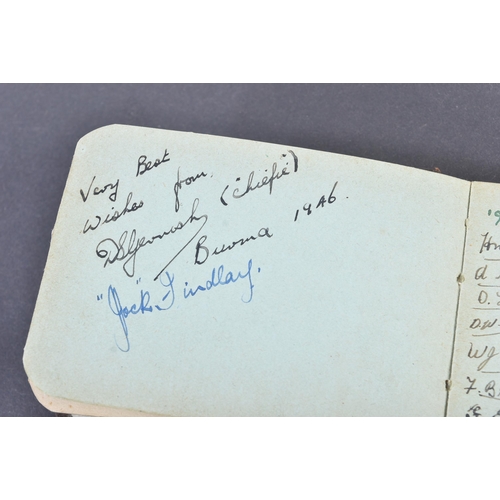 Very Best
Wishes from
("Chiefie")
Burma 1946.
"Jock" Findlay.
'9
D.
D.W
WJ
F. B